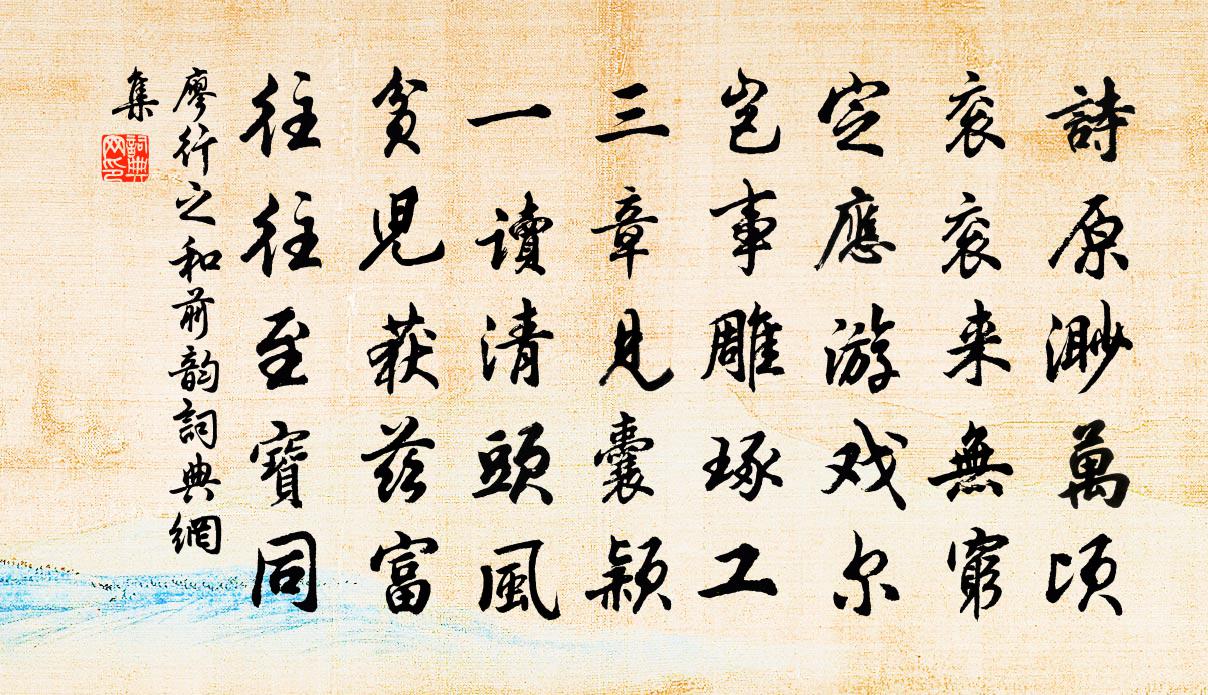 詩原渺萬頃
衮衮来無窮
定應游戏尔
岂事雕琢工
三章見囊颖
一讀清頭風
貧児获兹富
往往至寶同
廖行之和前韵詞典網
集
詞典網印